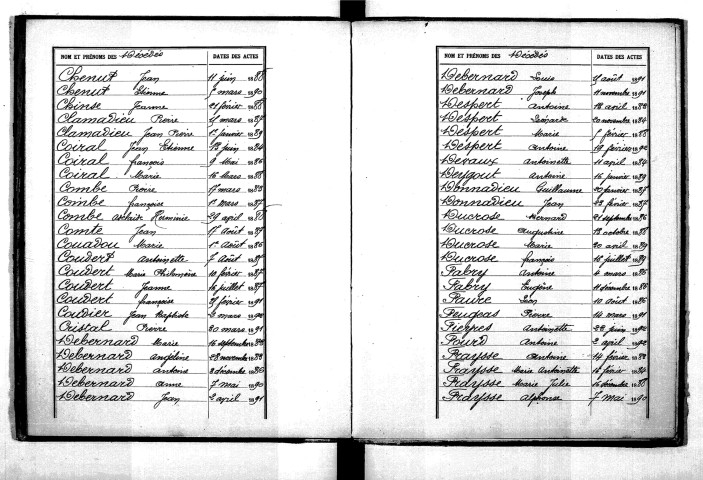 NOM ET PRÉNOMS DES Décédés DATES DES ACTES
Chenut Jean 11 juin 1888
Chenut Etienne 7 mars 1890
Chinse Jeanne 21 février 1888
Clamadieu Pierre 5 mars 1887
Clamadieu Jean Pierre 1er janvier 1889
Coiral Jean Etienne 13 juin 1884
Coiral françois 9 Mai 1886
Coiral Marie 16 Mars 1888
Combe Pierre 17 mars 1883
Combe françoise 1er mars 1887
Combe Herminie 29 avril 1888
Comte Jean 17 Août 1887
Couadou Marie 1er Août 1886
Coudert Antoinette 7 Août
Coudert Marie Philomène 10 février 1887
Coudert Jeanne 16 juillet 1887
Coudert françoise 5 février 1891
Coudier Jean Baptiste mars 1890
Cristal Pierre 30 mars 1891
Debernard Marie 16 septembre 1883
Debernard Angéline 28 novembre 1883
Debernard Antoine 2 décembre 1886
Debernard Anne 7 mai 1890
Debernard Jean 2 avril 1891
NOM ET PRÉNOMS DES Décédés DATES DES ACTES
Debernard Louis 9 août 1891
Debernard Joseph 11 novembre 1891
Déspert Antoine 18 avril 1883
Déspert Léonarde 20 novembre 1884
Déspert Marie février 1888
Déspert Antoine 19 février 1892
Devaux Antoinette 11 avril 1884
Deygout Antoine 16 janvier 1889
Donnadieu Guillaume 20 janvier 1887
Donnadieu Jean 22 février 1887
Ducrose Bernard 21 septembre 1886
Ducrose Augustine 13 octobre 1888
Ducrose Marie 20 avril 1889
Ducrose françois 16 juillet 1889
Fabry Antoine 4 mars 1886
Fabry Eugène 11 décembre 1886
Faure Léon 10 août 1886
Feugeas Pierre 14 mars 1891
Fierres Antoinette 28 juin 1892
Antoine 2 avril 1892
Fraysse Antoine 14 février 1883
Fraysse Marie Antoinette 16 février 1884
Fraysse Marie Julie 16 décembre 1888
Fraysse Alphonse 7 mai 1890